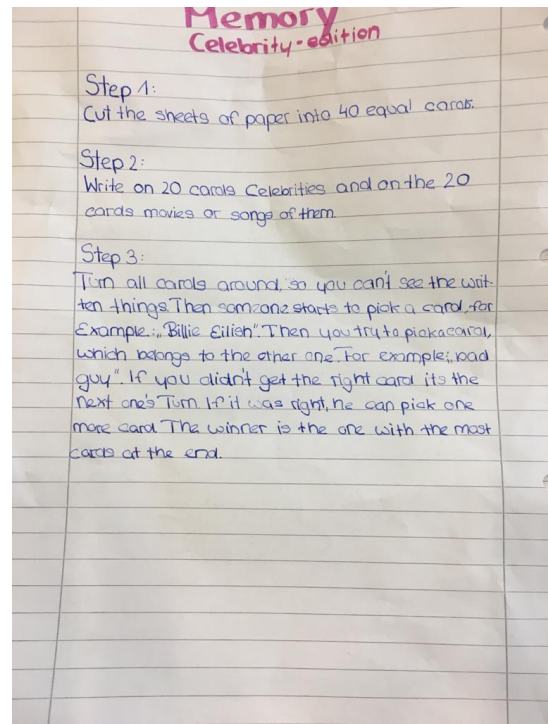 Memory
Celebrity-edition
Step 1:
Cut the sheets of paper into 40 equal cards.
Step 2:
Write on 20 cards Celebrities and on the 20
cards movies or songs of them.
Step 3:
Turn all cards around, so you can't see the writ-
ten things. Then someone starts to pick a card, for
Example: „Billie Eilish". Then you try to pick a card,
which belongs to the other one. For example: „bad
guy". If you didn't get the right card its the
next one's Turn. If it was right, he can pick one
more card. The winner is the one with the most
cards at the end.